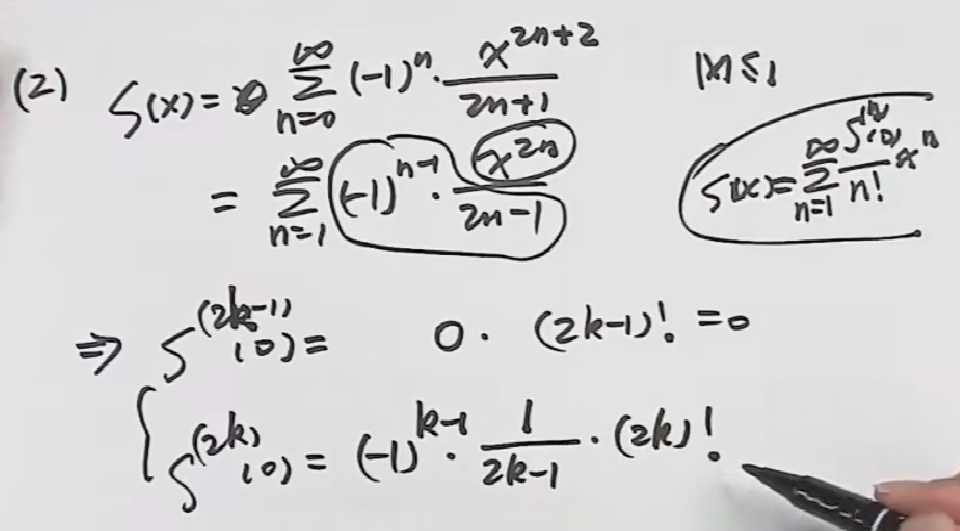 (2) S(x) = ∑_{n=0}^{∞} (-1)^n · x^{2n+2}/(2n+1) |x| ≤ 1
= ∑_{n=1}^{∞} (-1)^{n-1} · x^{2n}/(2n-1) S(x) = ∑_{n=1}^{∞} S^{(n)}(0)/n! x^n
⇒ S^{(2k-1)}(0) = 0 · (2k-1)! = 0
{ S^{(2k)}(0) = (-1)^{k-1} · 1/(2k-1) · (2k)!